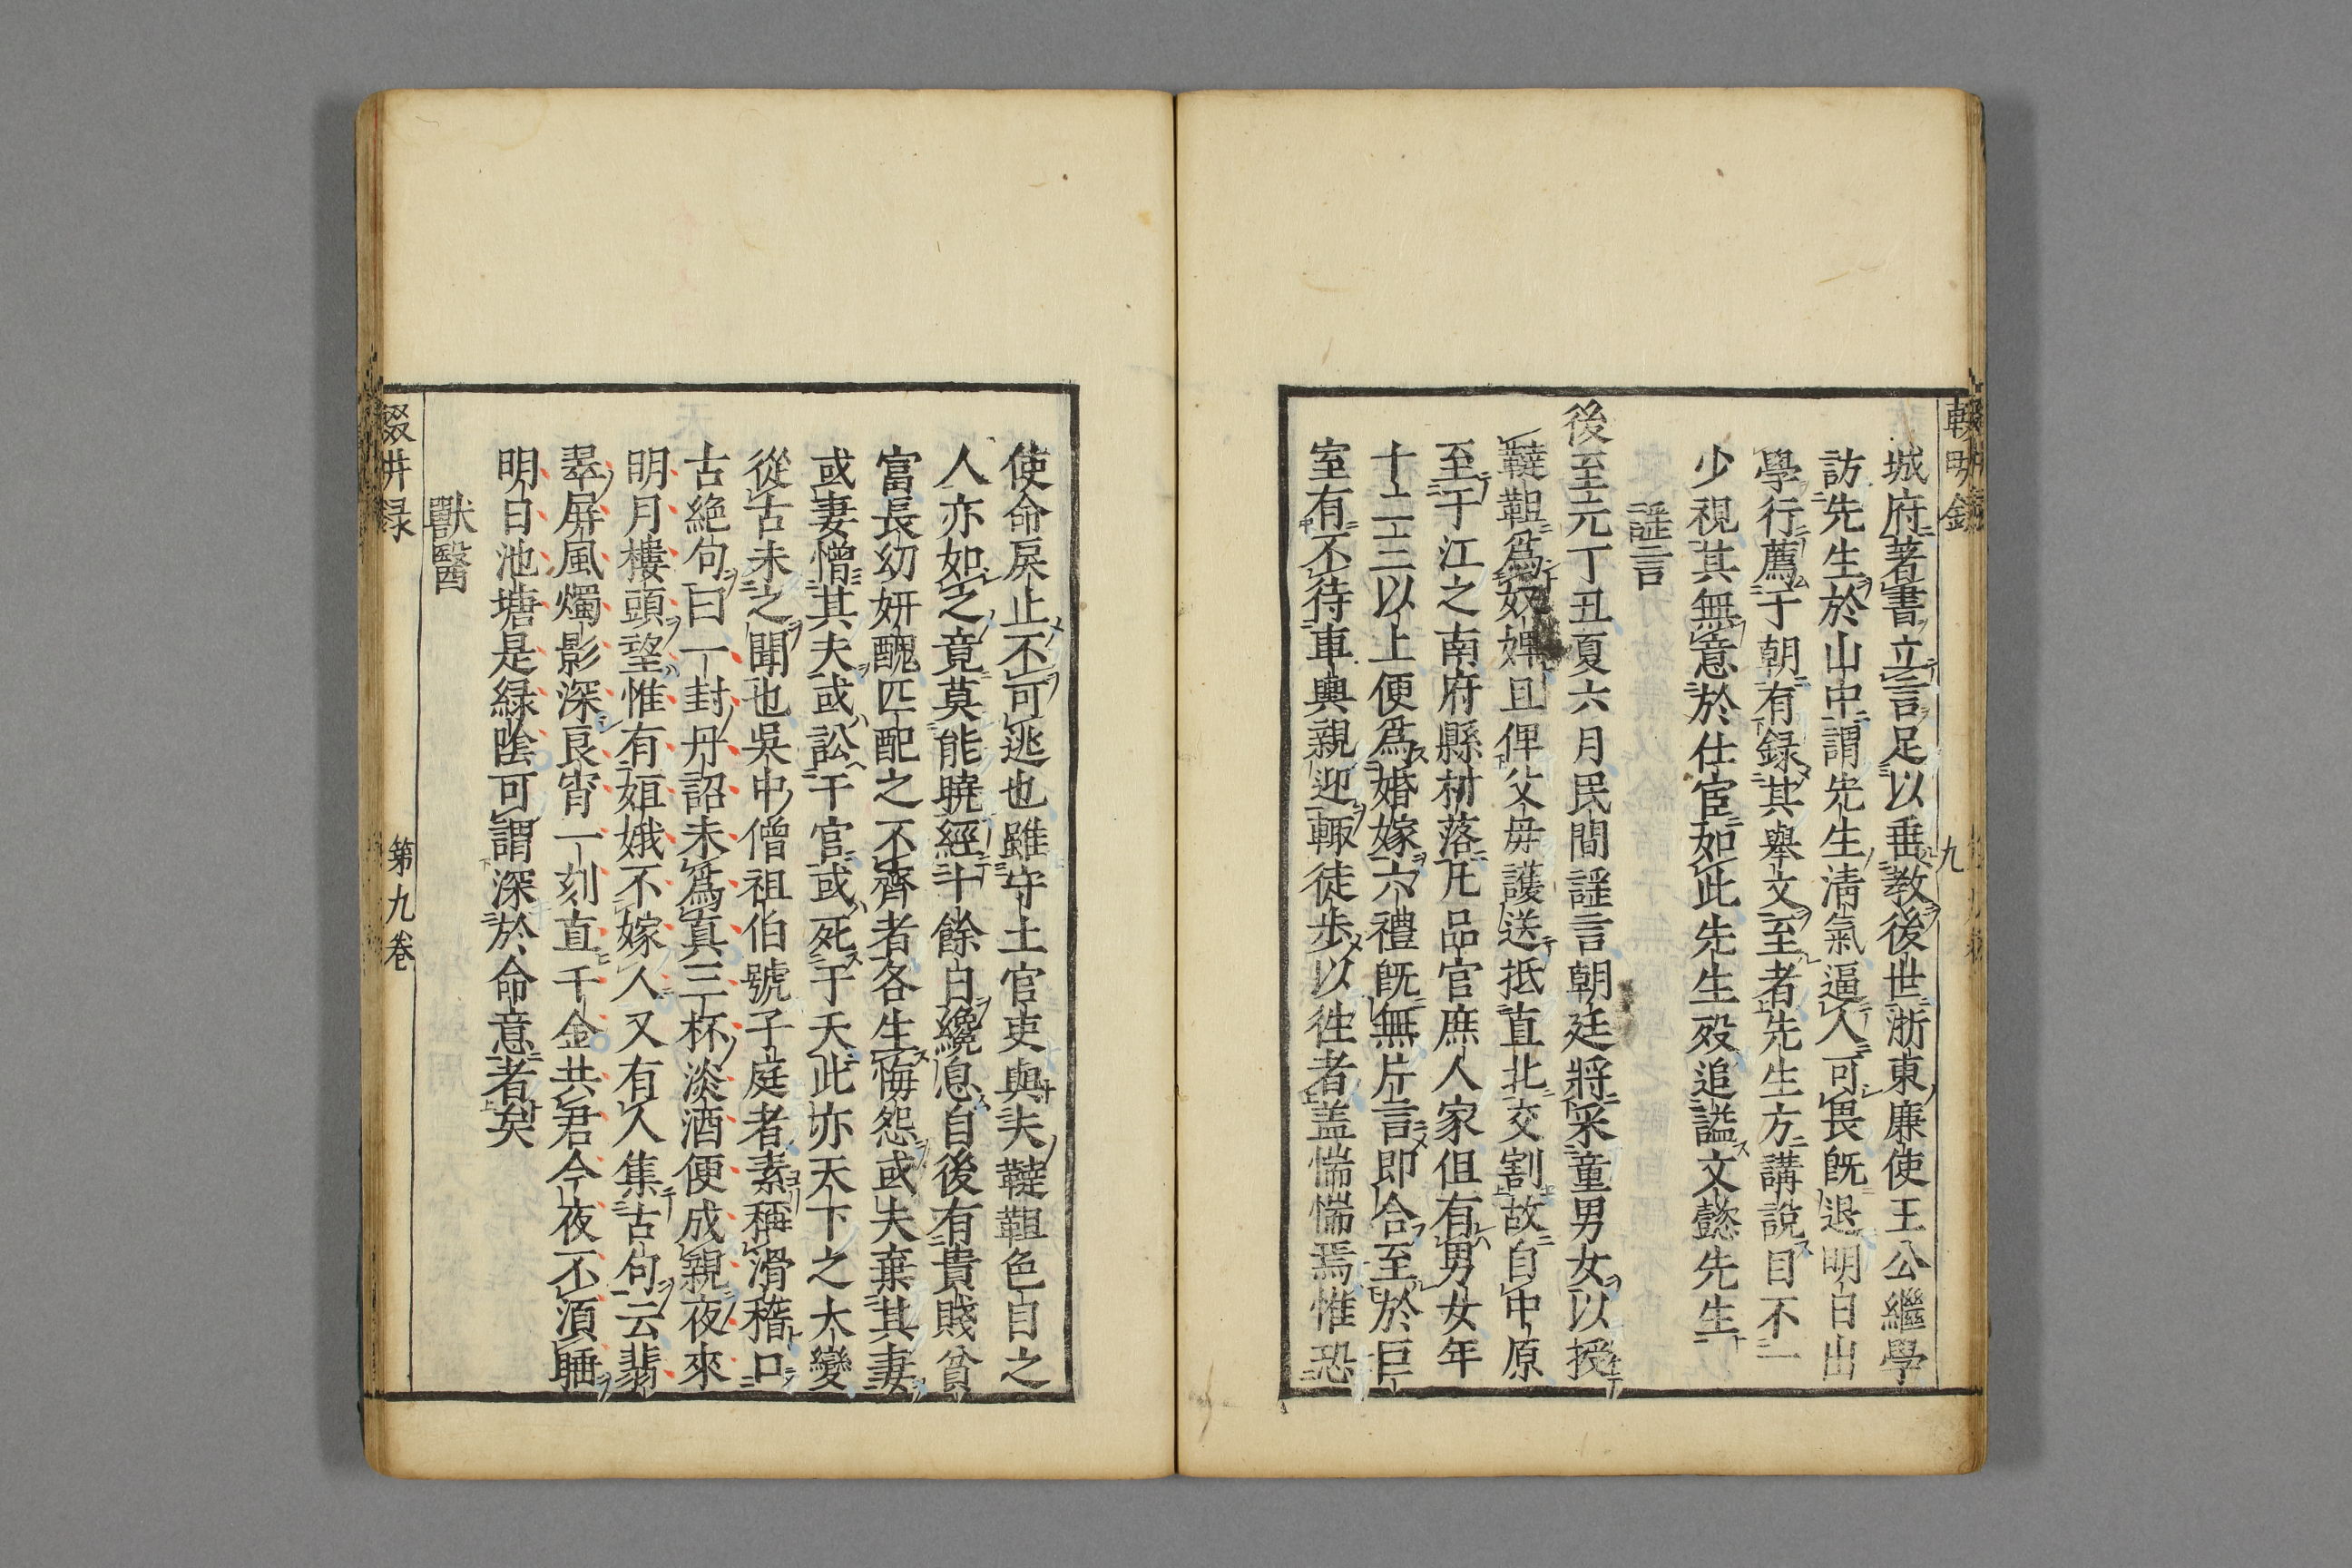 城府著書立言足以垂教後世浙東廉使王公繼學
訪先生於山中謂先生清氣逼人可畏既退明日出
學行薦于朝有録其舉文至者先生方講說目不一
少視其無意於仕宦如此先生歿追謚文懿先生
謡言
後至元丁丑夏六月民間謡言朝廷將采童男女以授
韃靼爲奴婢且俾父毋護送抵直北交割故自中原
至于江之南府縣村落凡品官庶人家但有男女年
十二三以上便爲婚嫁六禮既無片言即合至於巨
室有不待車輿親迎輙徒步以徃者盖惴惴焉惟恐
使命戾止不可逃也雖守土官吏與夫韃靼色目之
人亦如之竟莫能曉經十餘日纔息自後有貴賤貧
富長幼妍醜匹配之不齊者各生悔怨或夫棄其妻
或妻憎其夫或訟于官或死于夭此亦天下之大變
從古未之聞也吳中僧祖伯號子庭者素稱滑稽口
古絶句曰一封丹詔未爲真三杯淡酒便成親夜來
明月樓頭望惟有姮娥不嫁人又有人集古句云翡
翠屏風燭影深良宵一刻直千金共君今夜不須睡
明日池塘是緑陰可謂深於命意者矣
獸醫
第九卷